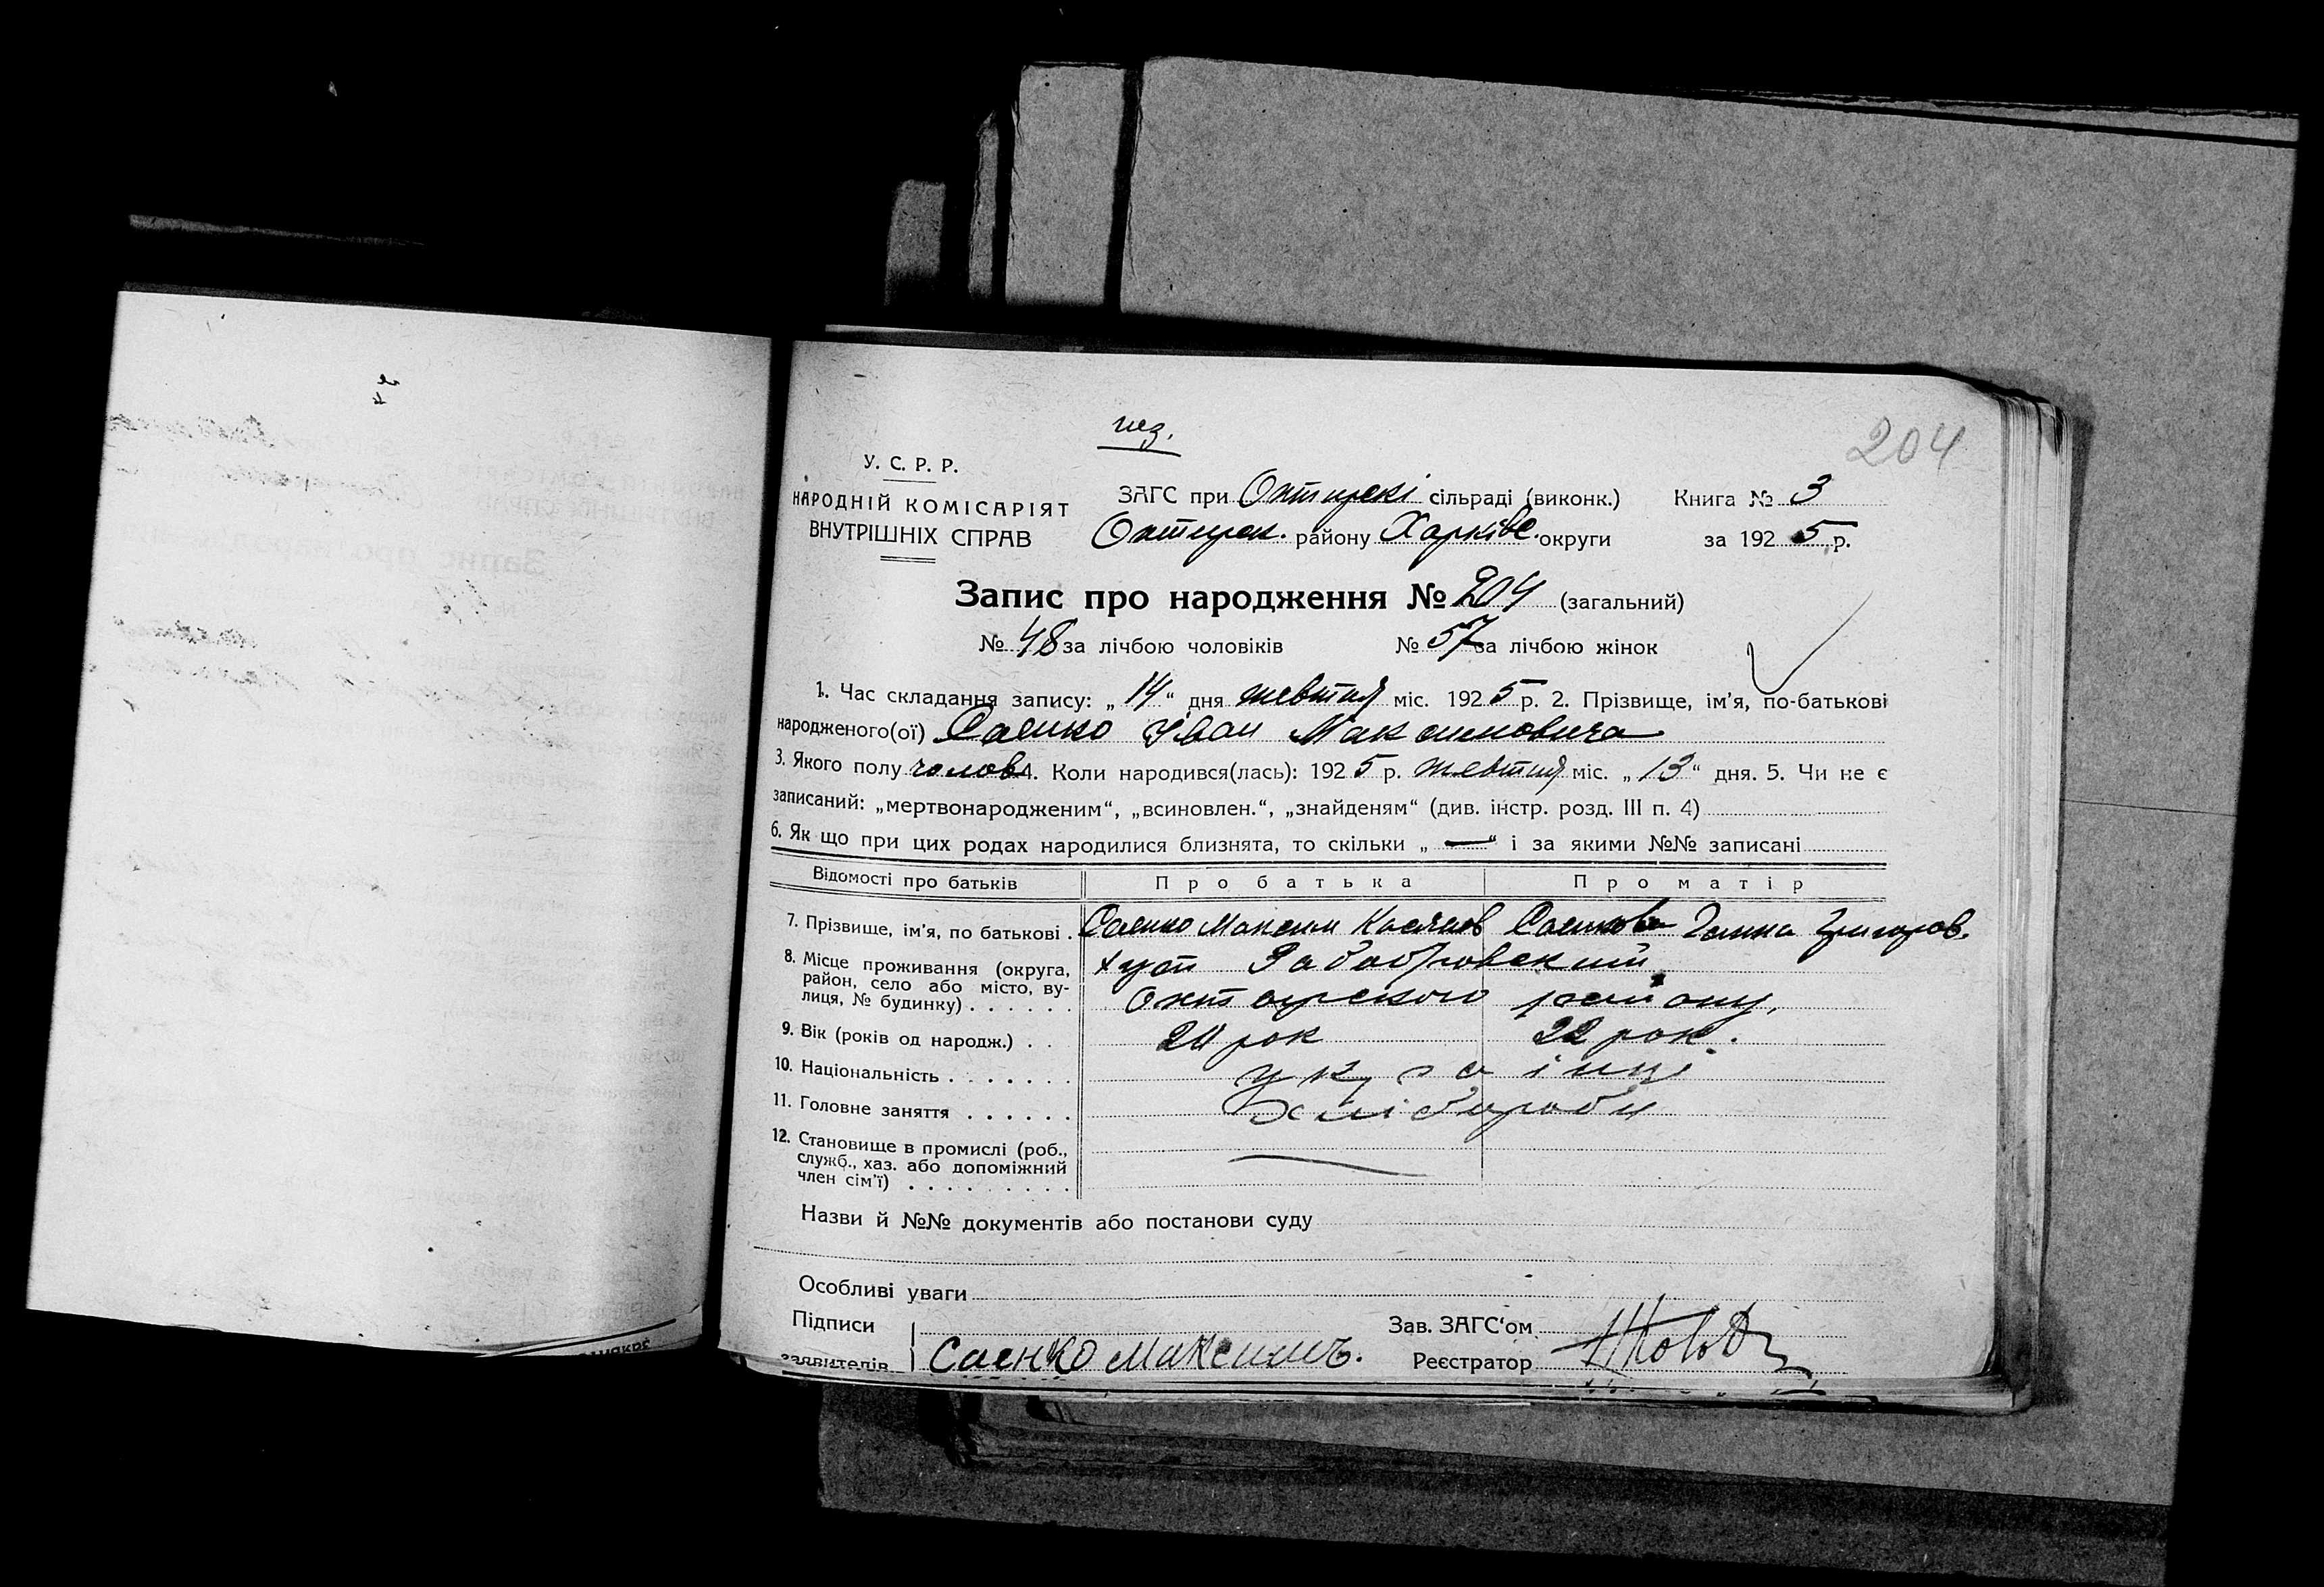 нез.
204
У. С. Р. Р.
НАРОДНІЙ КОМІСАРІЯТ
ВНУТРІШНІХ СПРАВ
ЗАГС при Охтирскі сільраді (виконк.) Книга № 3
Охтирск. району Харківс. округи за 1925 р.
Запис про народження № 204 (загальний)
№ 48 за лічбою чоловіків № 57 за лічбою жінок
1. Час складання запису: „14“ дня жовтня міс. 1925 р. 2. Прізвище, ім'я, по-батькові
народженого(ої) Саенко Іван Максимовича
3. Якого полу чолов 4. Коли народився(лась): 1925 р. жовтня міс. „13“ дня. 5. Чи не є
записаний: „мертвонародженим“, „всиновлен.“, „знайденям“ (див. інстр. розд. III п. 4)
6. Як що при цих родах народилися близнята, то скільки „—“ і за якими №№ записані
Відомості про батьків Про батька Про матір
7. Прізвище, ім'я, по батькові . Саенко Максим Касянов Саенкова Ганна Григоров.
8. Місце проживання (округа, район, село або місто, ву-
лиця, № будинку) . . . . . . хут
Охтирского району,
9. Вік (років од народж.) . . рок 22 рок.
10. Національність . . . . . . . украінці
11. Головне заняття . . . . . . Хлібороби
12. Становище в промислі (роб.,
служб., хаз. або допоміжний
член сім'ї) . . . . . . . . . —
Назви й №№ документів або постанови суду
Особливі уваги
Підписи Зав. ЗАГС'ом
заявителів Саенко Максимъ. Реєстратор